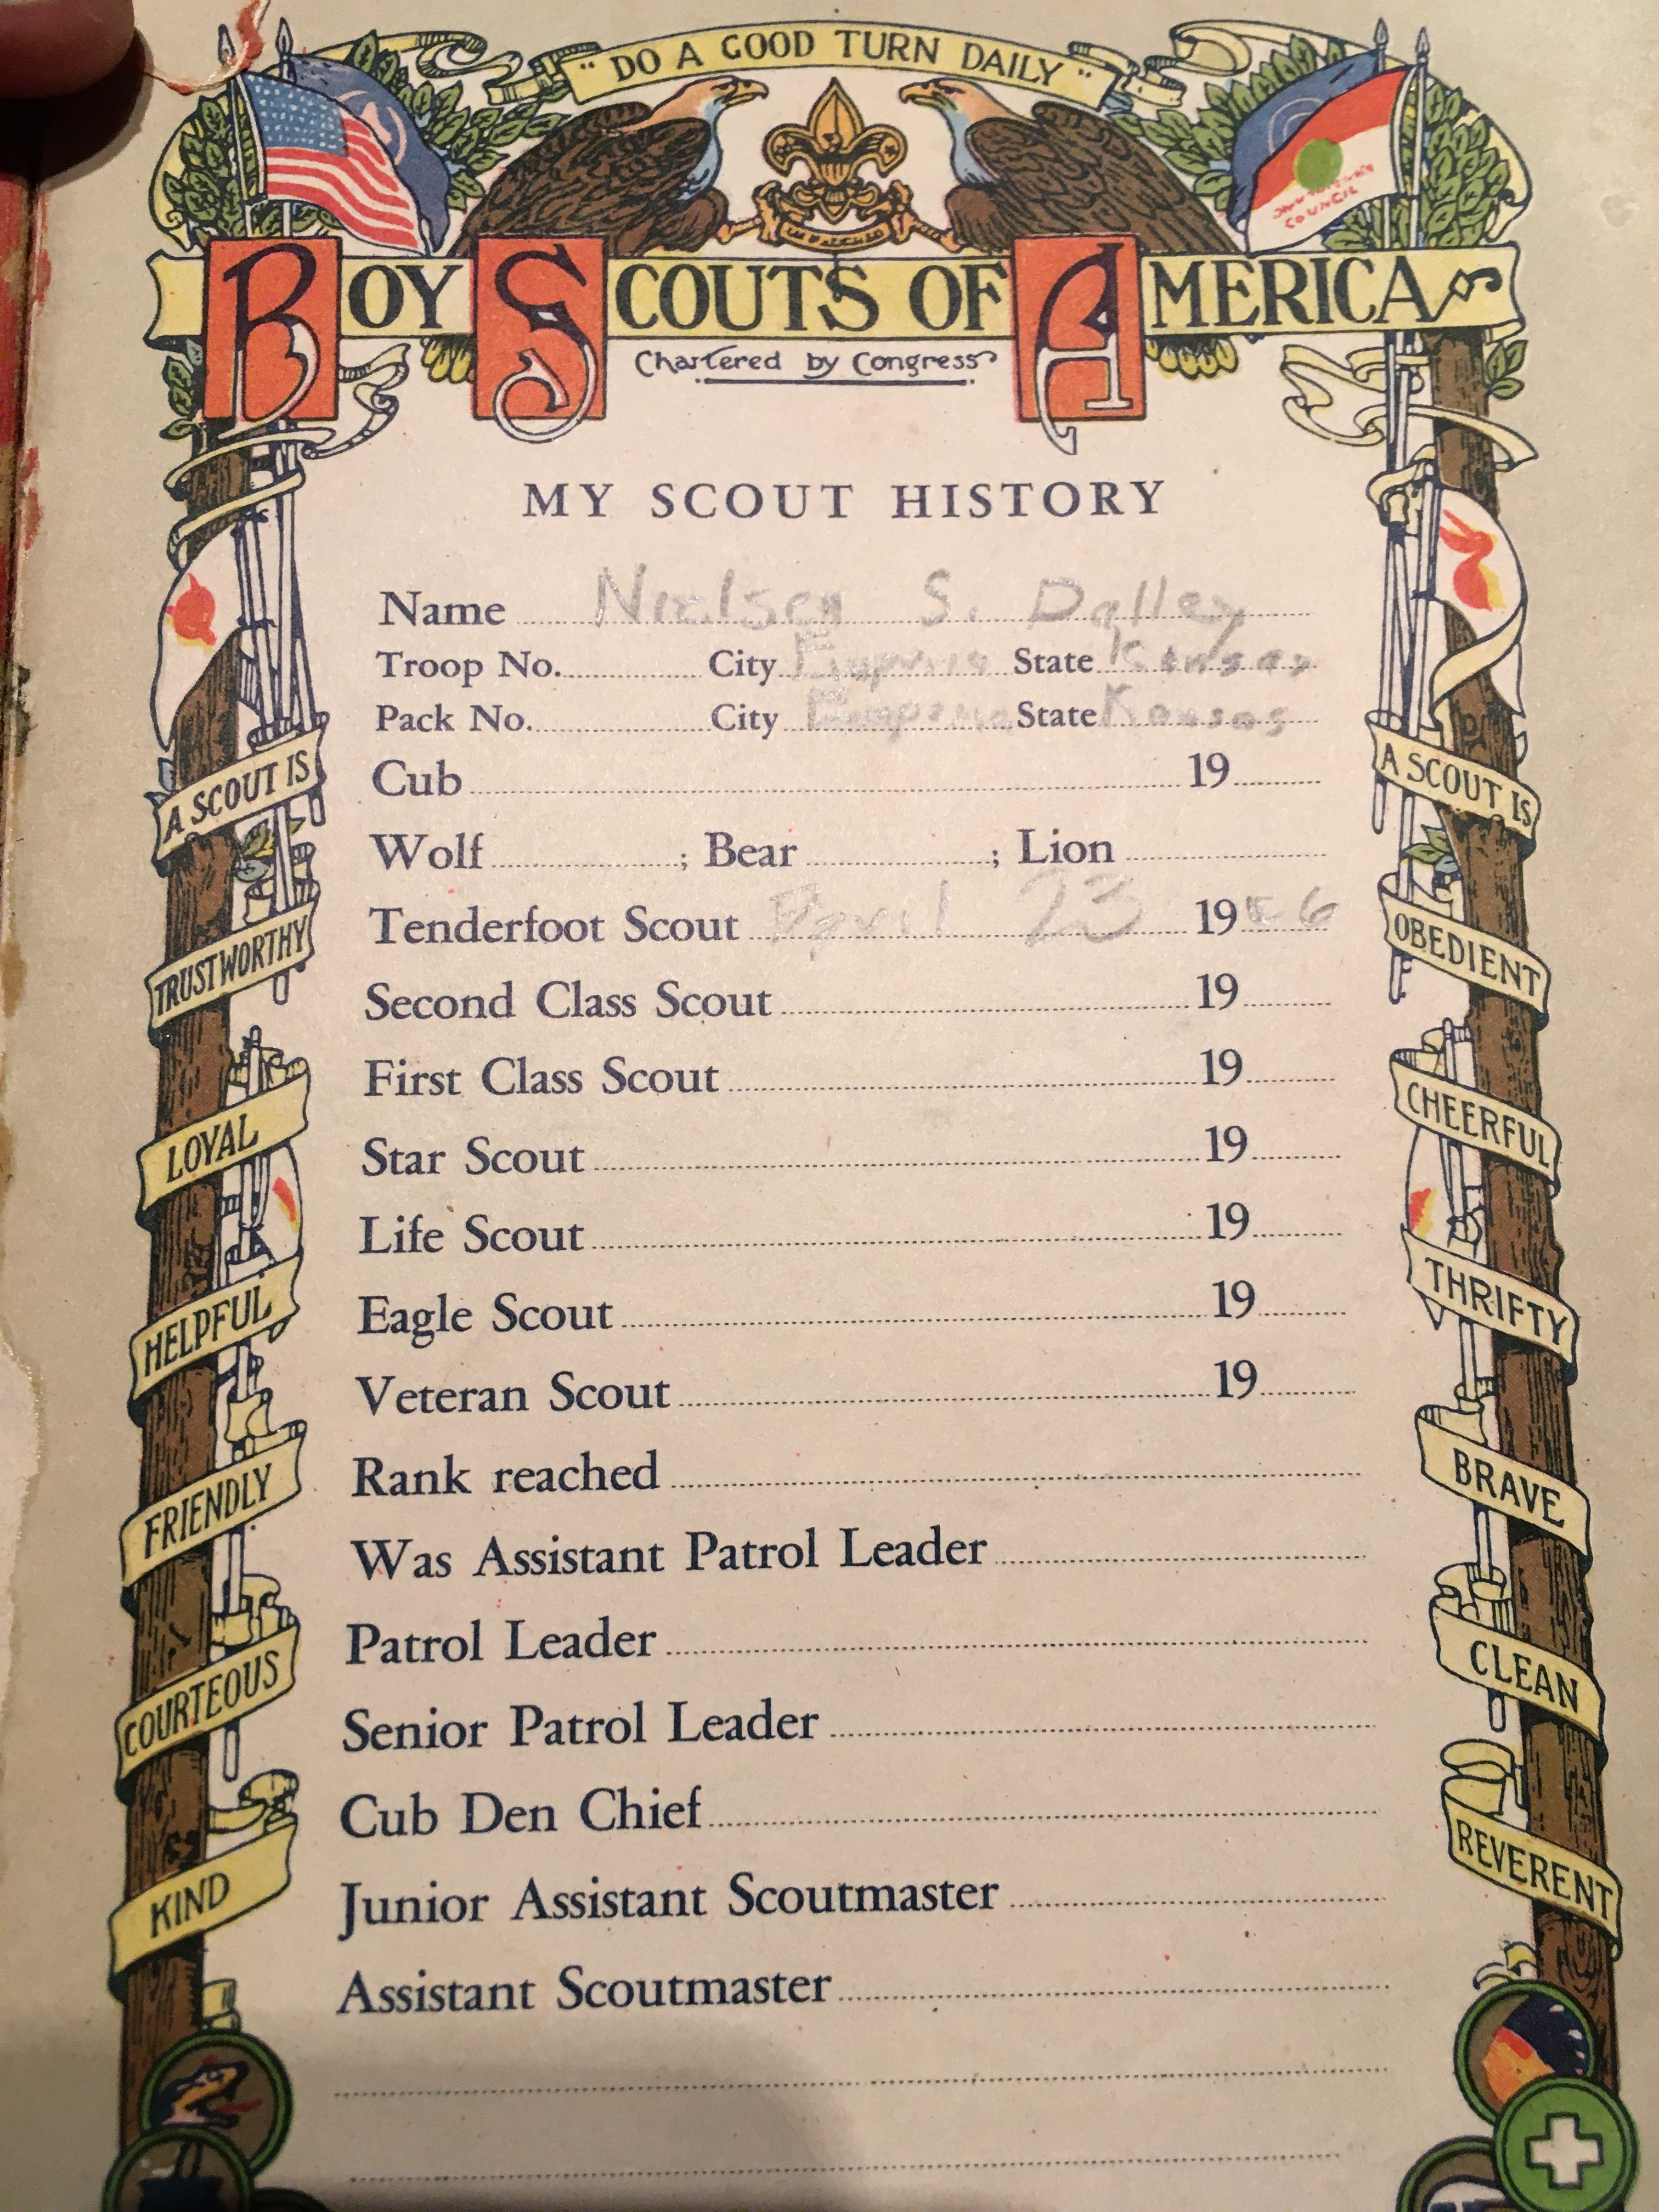 "DO A GOOD TURN DAILY"
COUNCIL
BOY SCOUTS OF AMERICA
Chartered by Congress
MY SCOUT HISTORY
Name Nielsen S. Dalley
Troop No. City Emporia State Kansas
Pack No. City Emporia State Kansas
Cub 19
Wolf ; Bear ; Lion
Tenderfoot Scout April 23 19
Second Class Scout 19
First Class Scout 19
Star Scout 19
Life Scout 19
Eagle Scout 19
Veteran Scout 19
Rank reached
Was Assistant Patrol Leader
Patrol Leader
Senior Patrol Leader
Cub Den Chief
Junior Assistant Scoutmaster
Assistant Scoutmaster
A SCOUT IS
TRUSTWORTHY
LOYAL
HELPFUL
FRIENDLY
COURTEOUS
KIND
A SCOUT IS
OBEDIENT
CHEERFUL
THRIFTY
BRAVE
CLEAN
REVERENT